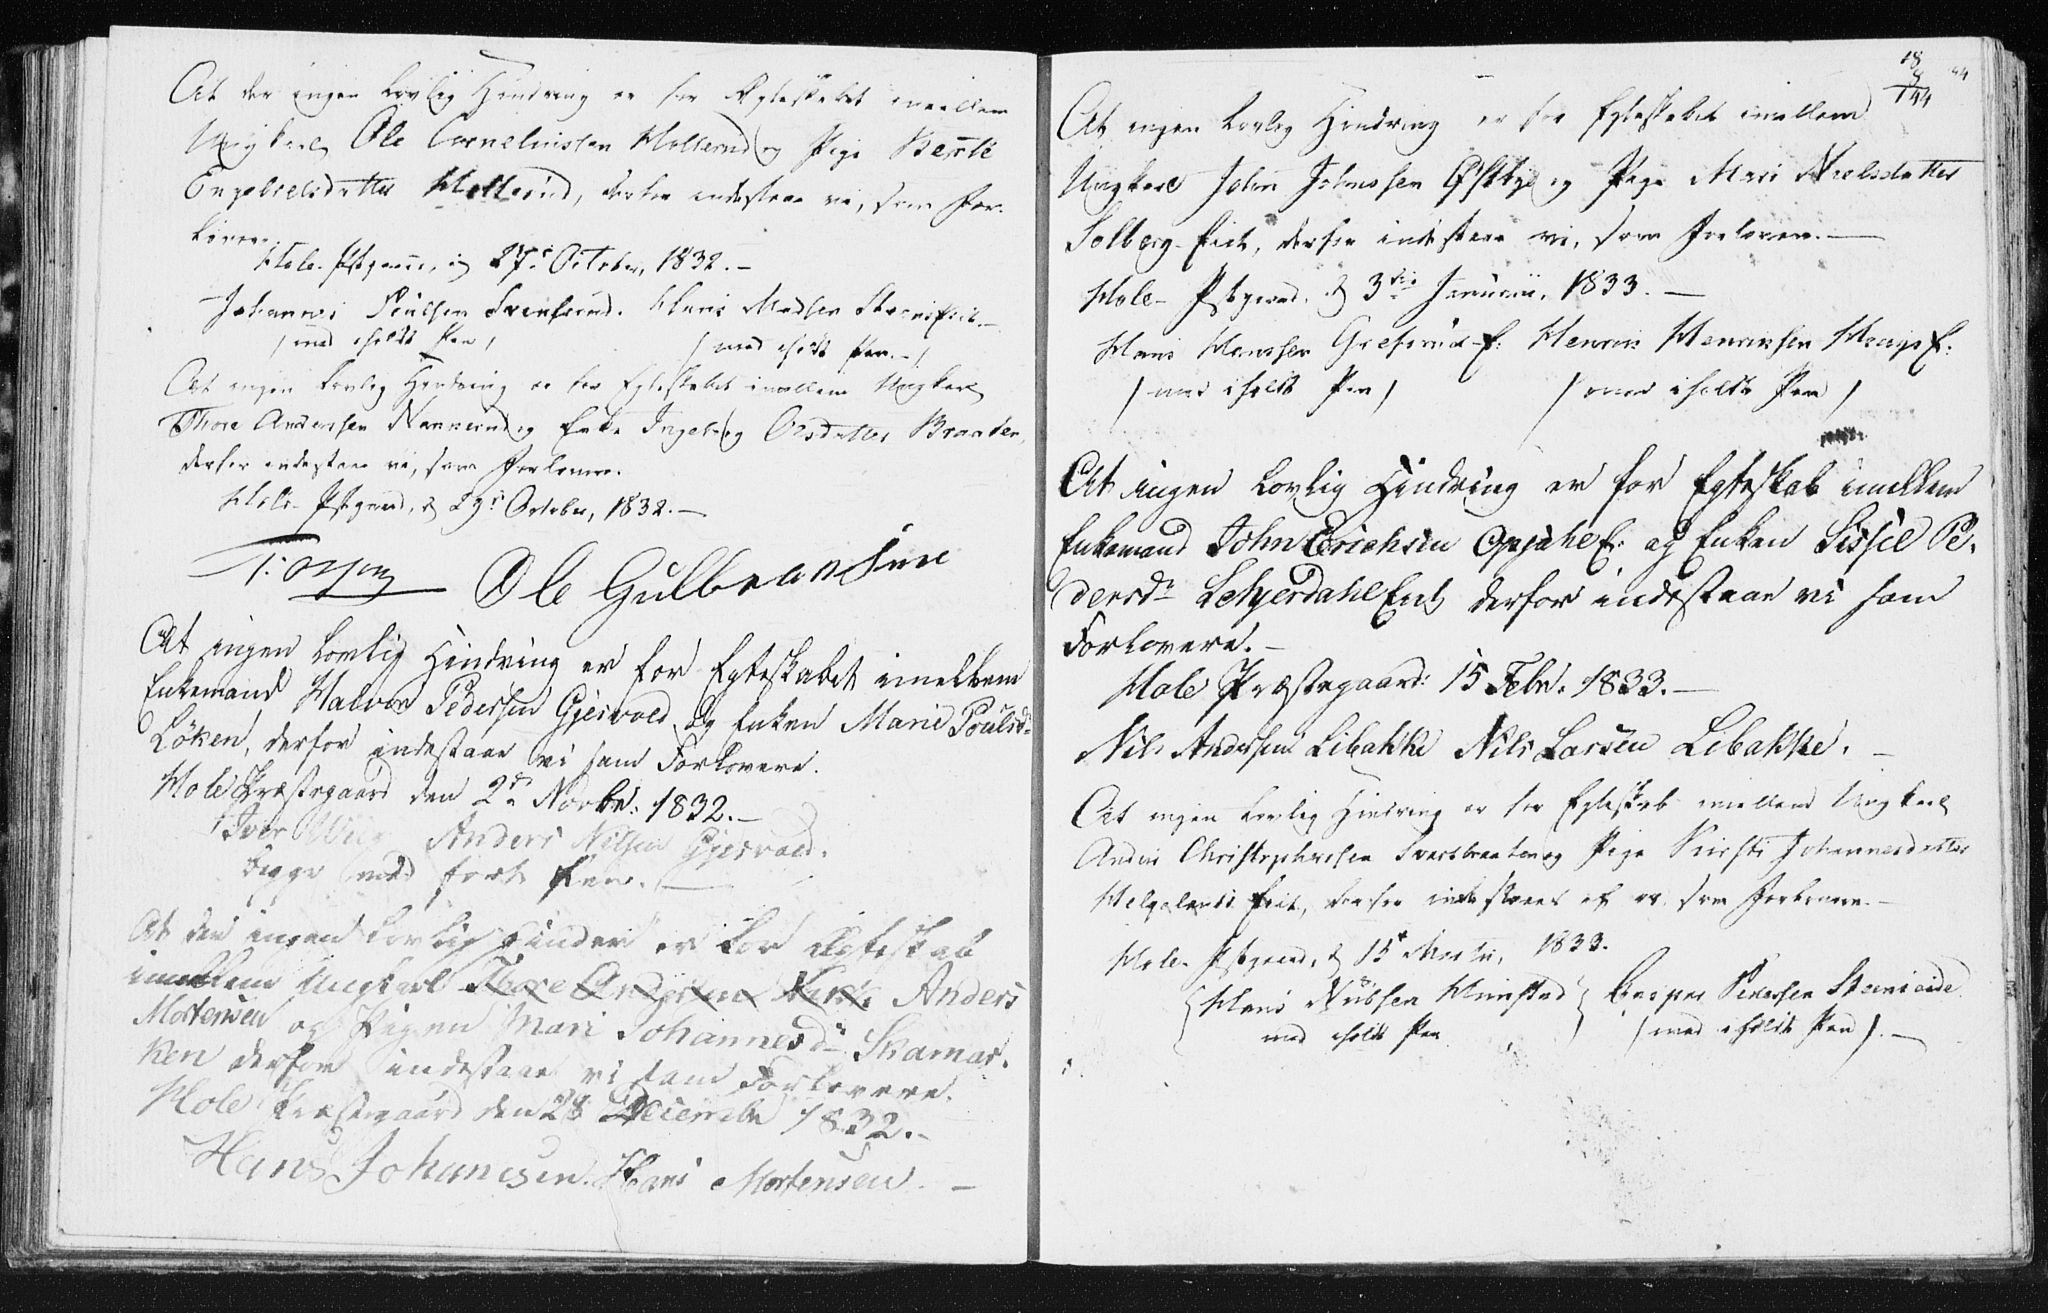 At der ingen Lovlig Hindring er for Ægteskabet imellem
Ungkarl Ole Corneliussen Hollerud og Pige Berthe
Engebretsdatter Hollerud, derfor indestaae vi, som For-
lovere.
Hole Præstgaard, d 27de October, 1832.-
Johannes Poulsen Svensrud. Hans Madsen
/ med iholdt Pen / / med iholdt Pen.-/
At ingen Lovlig Hindring er for Egteskabet imellem Ungkarl
Thore Andersen Nannerud og Enke Ingeborg Olsdatter Braaten,
derfor indestaae vi, som Forlovere.
Hole Pstgaard, d 29de October, 1832.-
Ole Gulbransene
At ingen Lovlig Hindring er for Egteskabet imellem
Enkemand Halvor Pedersen Gjesvold og Enken Marie Poulsdr
Löken, derfor indestaae vi som Forlovere.
Hole Præstegaard den 2de Novbr: 1832.-
Iver Wiig Anders Nilsen Gjesvold.
begge med ført Pen.-
At der ingen Lovlig Hinder er for Ægteskab
imellem Ungkarl Thore Andersen Anders
Mortensen og Pigen Mari Johannesdr Skamar-
ken derfor indestaae vi som Forlovere.
Hole Præstegaard den 28 Decembr 1832.-
Hans Johannesen. Hans Mortensen.-
18
8
144
At ingen Lovlig Hindring er for Egteskabet imellem
Ungkarl John Johnssen Østbye og Pige Mari Nielsdatter
Solberg-Eiet, derfor indestaae vi, som Forlovere.-
Hole- Pstgaard, d 3die Januarii, 1833.-
Hans Hanssen Gresrud-E: Henrik Henriksen E:
/ med iholdt Pen / / med iholdt Pen /
At ingen Lovlig Hindring er for Egteskab imellem
Enkemand John Erichsen OpjahlE: og Enken Sissel Pe-
dersdr LehjerdahlEiet derfor indestaae vi som
Forlovere.-
Hole Præstegaard: 15 Febr. 1833.-
Nils Andersen Libakke Nils Larsen Libakke.-
At ingen Lovlig Hindring er for Egteskab imellem Ungkarl
Anders Christophersen Svartbraaten og Pige Kirsti Johannesdatter
Helgelands Eiet, derfor indestaaes af os som Forlovere.-
Hole- Pstgaard, d 15de Martii, 1833.
Hans Nubsen Hunstad Casper Pedersen
med iholdt Pen / med iholdt Pen /.-